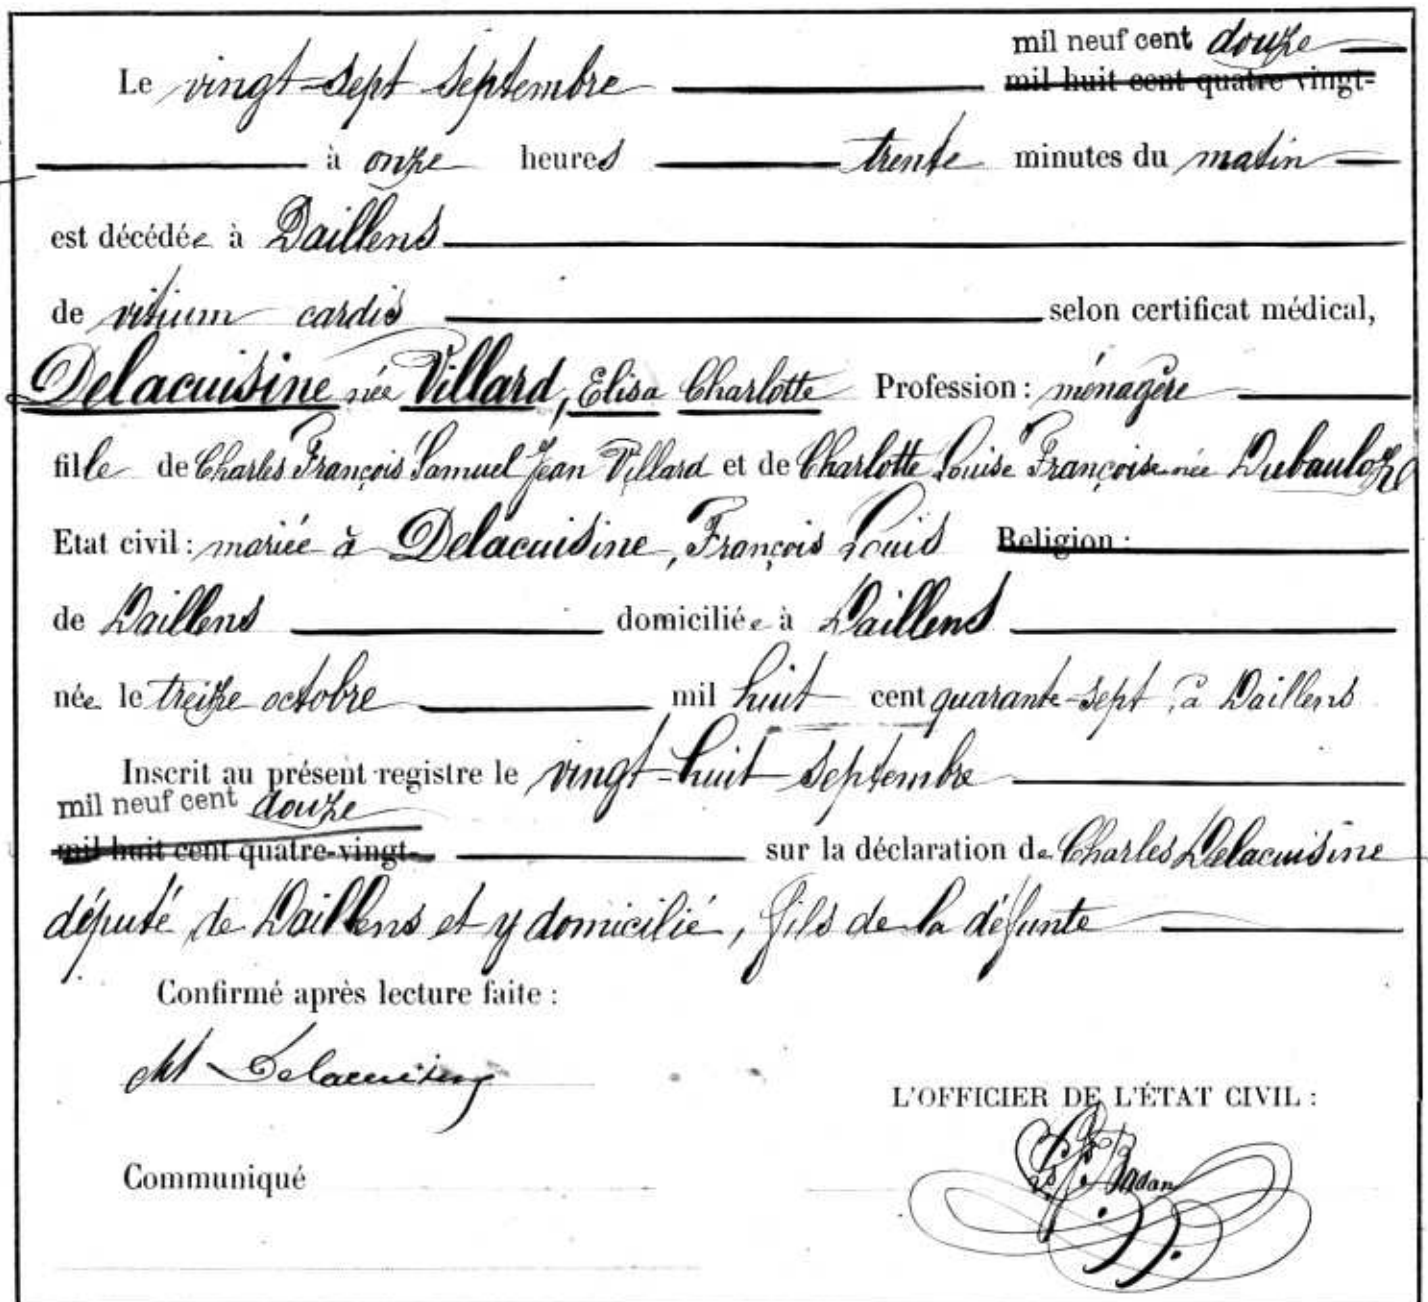 mil neuf cent douze
Le vingt-sept septembre mil huit cent quatre vingt-
à onze heures trente minutes du matin
est décédée à Daillens
de vitium cardis selon certificat médical,
Delacuisine née Villard, Elisa Charlotte Profession : ménagère
fille de Charles François Samuel Jean Villard et de Charlotte Louise Françoise née Dubauloz
Etat civil : mariée à Delacuisine, François Louis Religion :
de Daillens domiciliée à Daillens
née le treize octobre mil huit cent quarante-sept, à Daillens
Inscrit au présent registre le vingt-huit septembre
mil neuf cent douze
mil huit cent quatre-vingt- sur la déclaration de Charles Delacuisine
député, de Daillens et y domicilié, fils de la défunte
Confirmé après lecture faite :
Delacuisine
L'OFFICIER DE L'ÉTAT CIVIL :
Communiqué